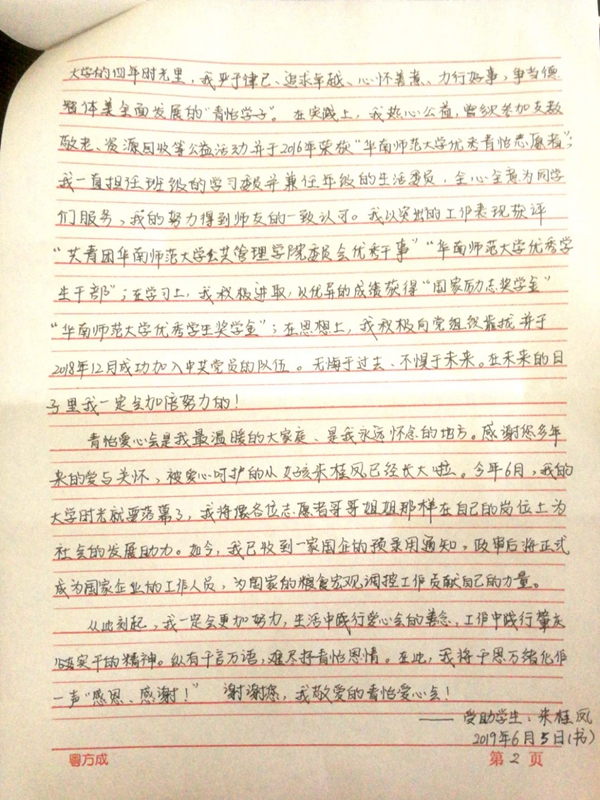 大学的四年时光里，我严于律己、追求卓越、心怀善意、力行好事，争当德
智体美全面发展的“青怡学子”。在实践上，我热心公益，曾多次参加支教
敬老、资源回收等公益活动并于2016年荣获“华南师范大学优秀青怡志愿者”；
我一直担任班级的学习委员并兼任年级的生活委员，全心全意为同学
们服务，我的努力得到师友的一致认可。我以突出的工作表现获评
“共青团华南师范大学公共管理学院委员会优秀干事”“华南师范大学优秀学
生干部”；在学习上，我积极进取，以优异的成绩获得“国家励志奖学金”
“华南师范大学优秀学生奖学金”；在思想上，我积极向党组织靠拢并于
2018年12月成功加入中共党员的队伍。无悔于过去、不惧于未来。在未来的日
子里我一定会加倍努力的！
青怡爱心会是我最温暖的大家庭、是我永远怀念的地方。感谢您多年
来的爱与关怀，被爱心呵护的小女孩朱桂凤已经长大啦。今年6月，我的
大学时光就要落幕了，我将像各位志愿者哥哥姐姐那样在自己的岗位上为
社会的发展助力。如今，我已收到一家国企的预录用通知，政审后将正式
成为国家企业的工作人员，为国家的粮食宏观调控工作贡献自己的力量。
从此刻起，我一定会更加努力，生活中践行爱心会的善念，工作中践行
实干的精神。纵有千言万语，难尽抒青怡恩情。在此，我将千思万绪化作
一声“感恩、感谢！” 谢谢您，我敬爱的青怡爱心会！
——受助学生：朱桂凤
2019年6月5日(书)
粤方成 第2页